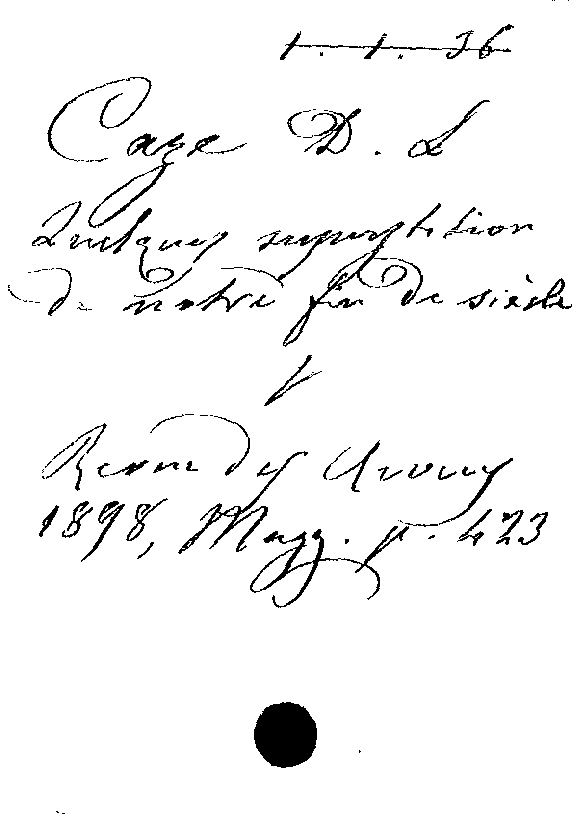 1.1.36
Caze D. L
Quelques superstition
de notre fin de siècle
Revue des Revues
1898, Magg. p. 423